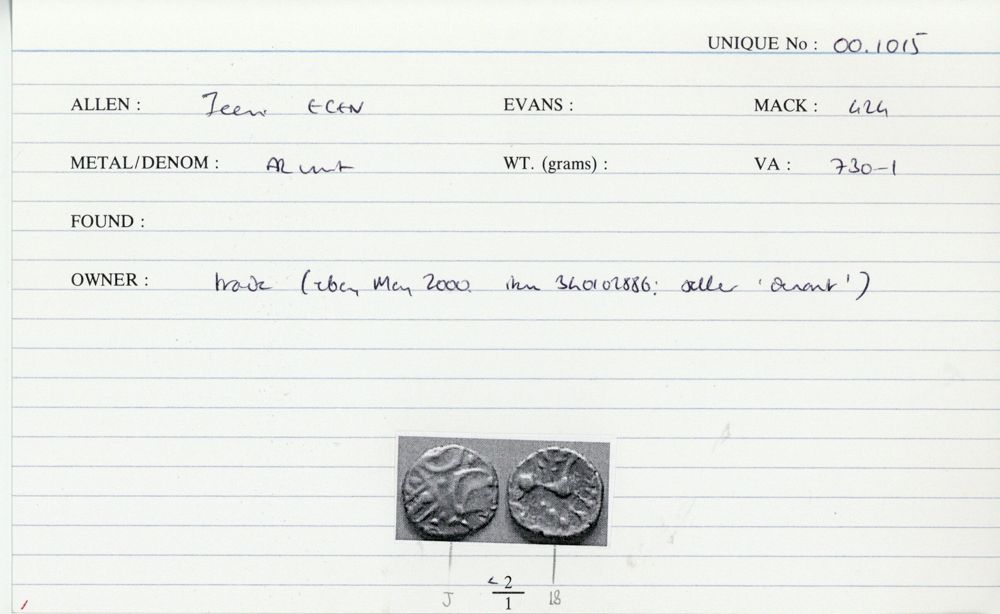 UNIQUE No : 00.1015
ALLEN : Iceni ECEN EVANS : MACK : 424
METAL/DENOM : AR unit WT. (grams) : VA : 730-1
FOUND :
OWNER : trade (ebay May 2000. item 340102886: seller ' ')
< 2
J 1 18